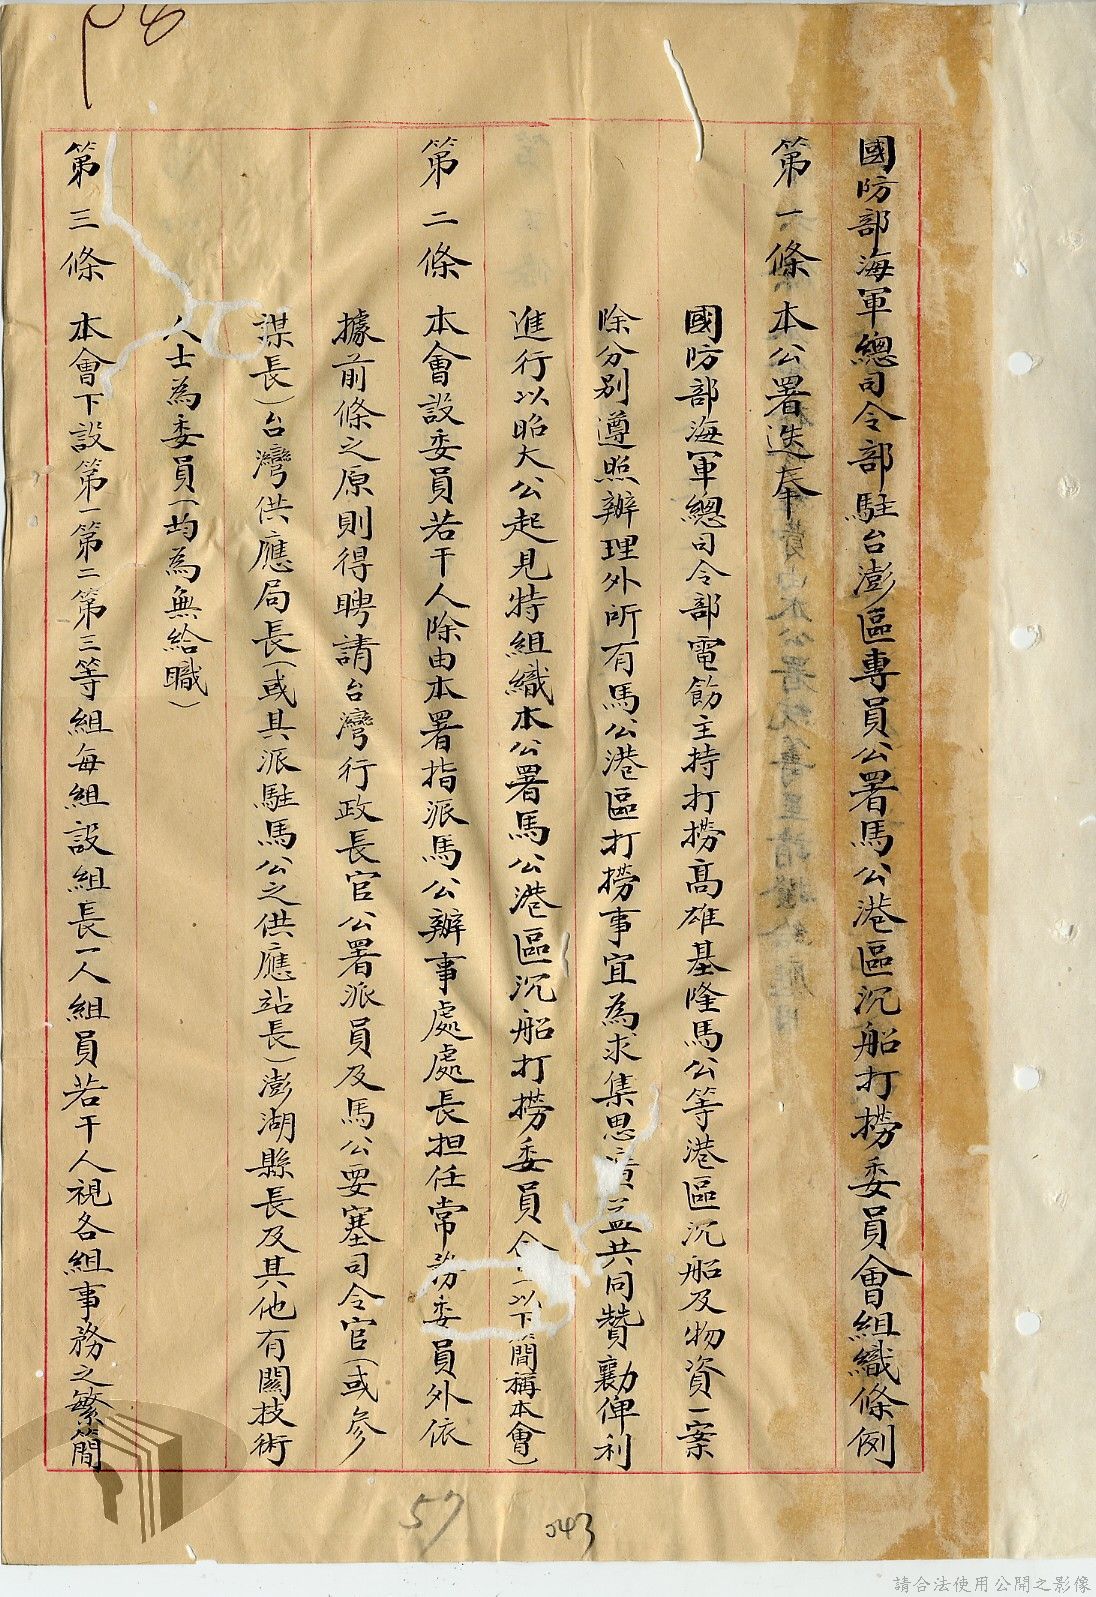 國防部海軍總司令部駐台澎區專員公署馬公港區沉船打撈委員會組織條例
第一條 本公署迭奉
國防部海軍總司令部電飭主持打撈高雄基隆馬公等港區沉船及物資一案
除分別遵照辦理外所有馬公港區打撈事宜為求集思廣益共同贊勷俾利
進行以昭大公起見特組織本公署馬公港區沉船打撈委員會(以下簡稱本會)
第二條 本會設委員若干人除由本署指派馬公辦事處處長担任常務委員外依
據前條之原則得聘請台灣行政長官公署派員及馬公要塞司令官(或參
謀長)台灣供應局長(或其派駐馬公之供應站長)澎湖縣長及其他有關技術
人士為委員(均為無給職)
第三條 本會下設第一第二第三等組每組設組長一人組員若干人視各組事務之繁簡
57
043
請合法使用公開之影像